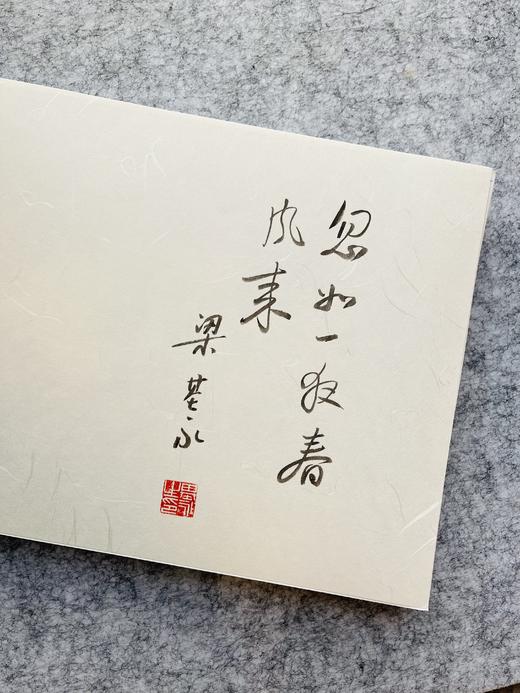 忽如一夜春
风来
梁基永